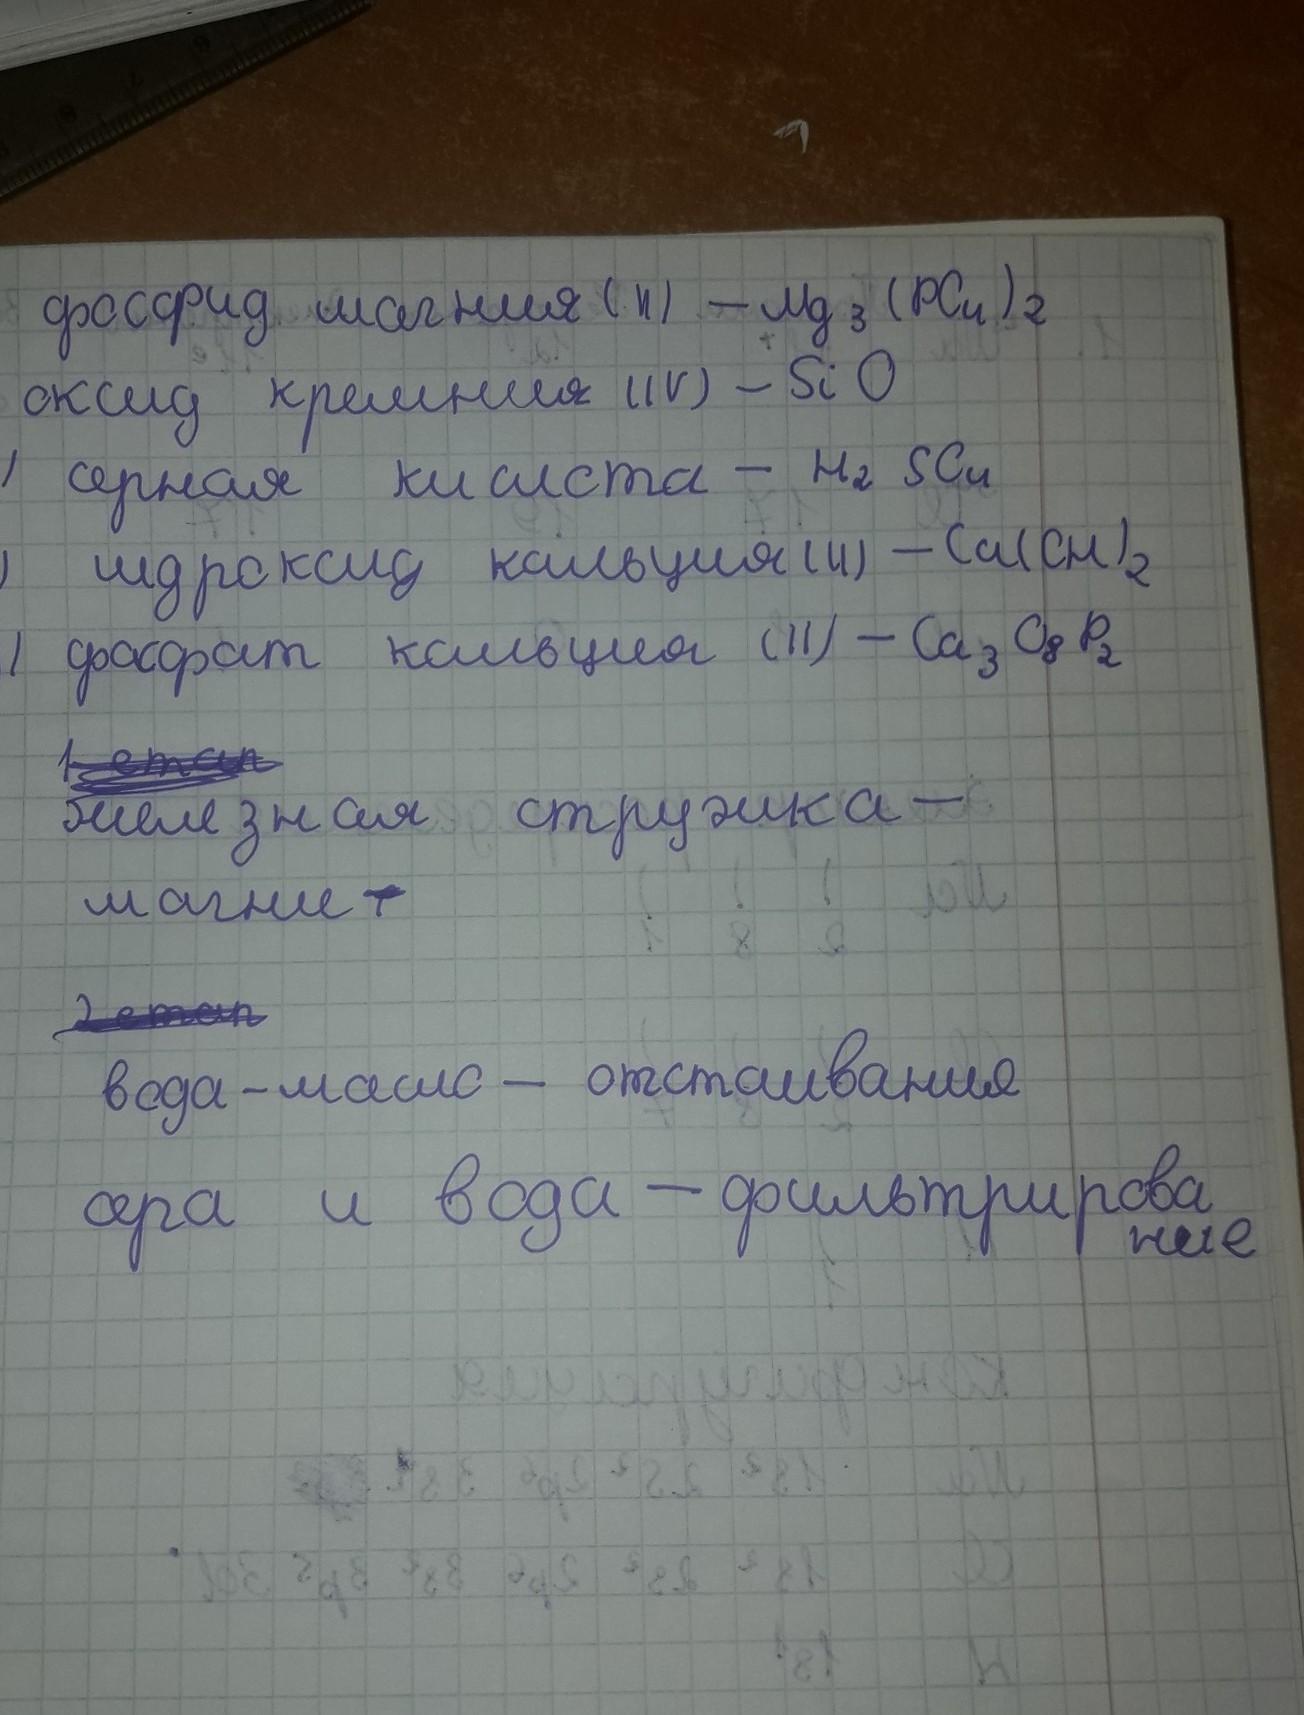 фосфид магния (II) – Mg3(PO4)2
оксид кремния (IV) – SiO
) серная кислота – H2 SO4
) гидроксид кальция (II) – Ca(OH)2
) фосфат кальция (II) – Ca3O8P2
1 етап
железная стружка –
магнит
2 етап
вода – масло – отстаивания
сера и вода – фильтрирова
ние